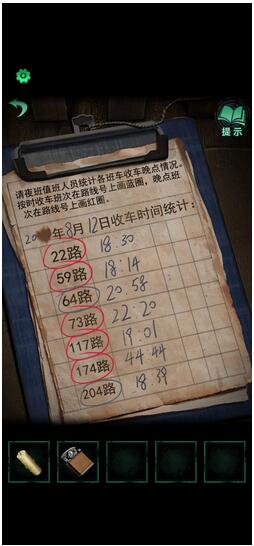 提示
请夜班值班人员统计各班车收车晚点情况。
按时收车班次在路线号上画蓝圈，晚点班
次在路线号上画红圈。
20 年8月12日收车时间统计：
22路 18:30
59路 18:14
64路 20:58
73路 22:20
117路 19:01
174路 44:44
204路 18:39